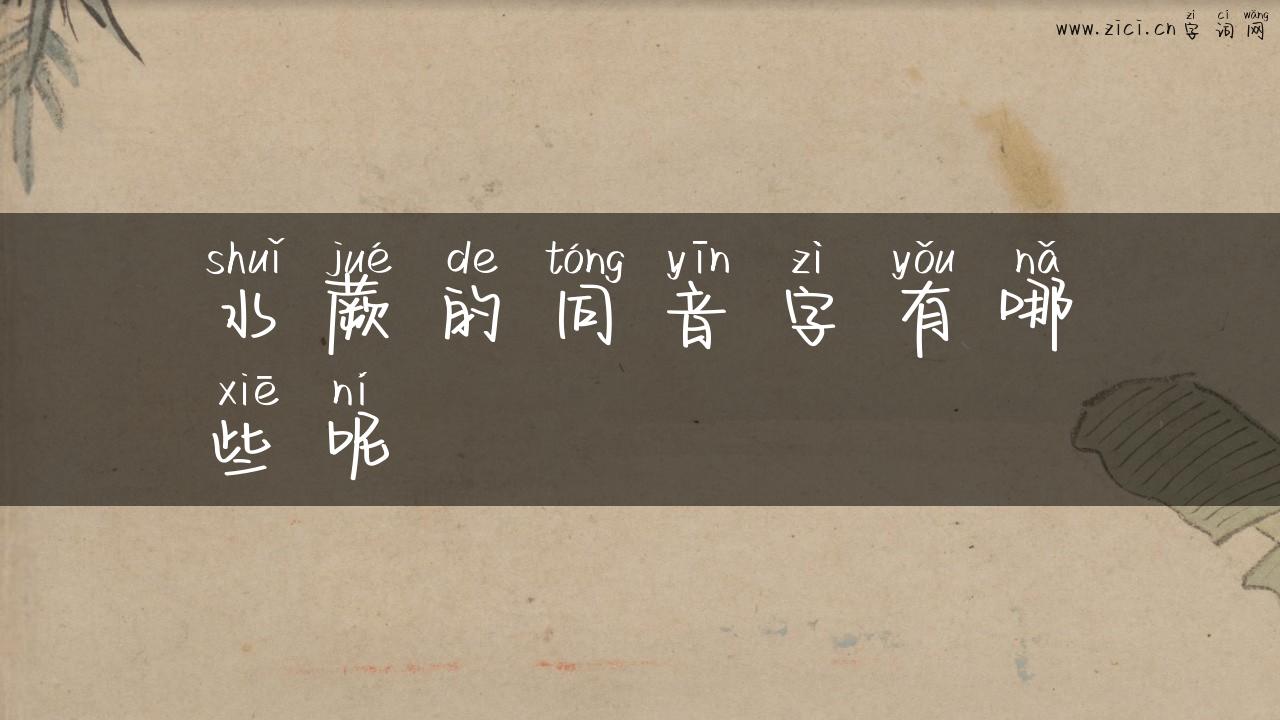 zì cí wǎng
www.zici.cn字词网
shuǐ jué de tóng yīn zì yǒu nǎ
水蕨的同音字有哪
xiē ní
些呢